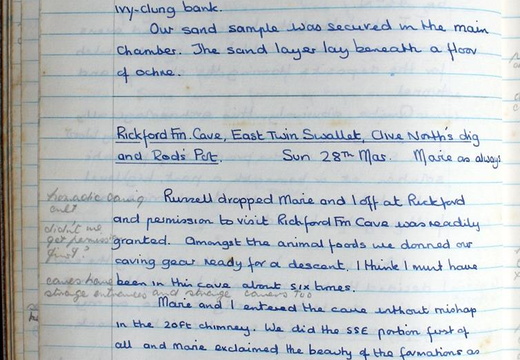 ivy-clung bank.
Our sand sample was secured in the main
chamber. The sand layer lay beneath a floor
of ochre.
Rickford Fm Cave, East Twin Swallet, Clive North's dig
and Rod's Pot. Sun 28TH Mar. Marie as always
Russell dropped Marie and I off at Rickford
and permission to visit Rickford Fm Cave was readily
granted. Amongst the animal foods we donned our
caving gear ready for a descent, I think I must have
been in this cave about six times.
caves have
strange entrances and strange cavers too
Marie and I entered the cave without mishap
in the 20ft chimney. We did the SSE portion first of
all and Marie exclaimed the beauty of the formations as
caving
only
didn't we
get
first?